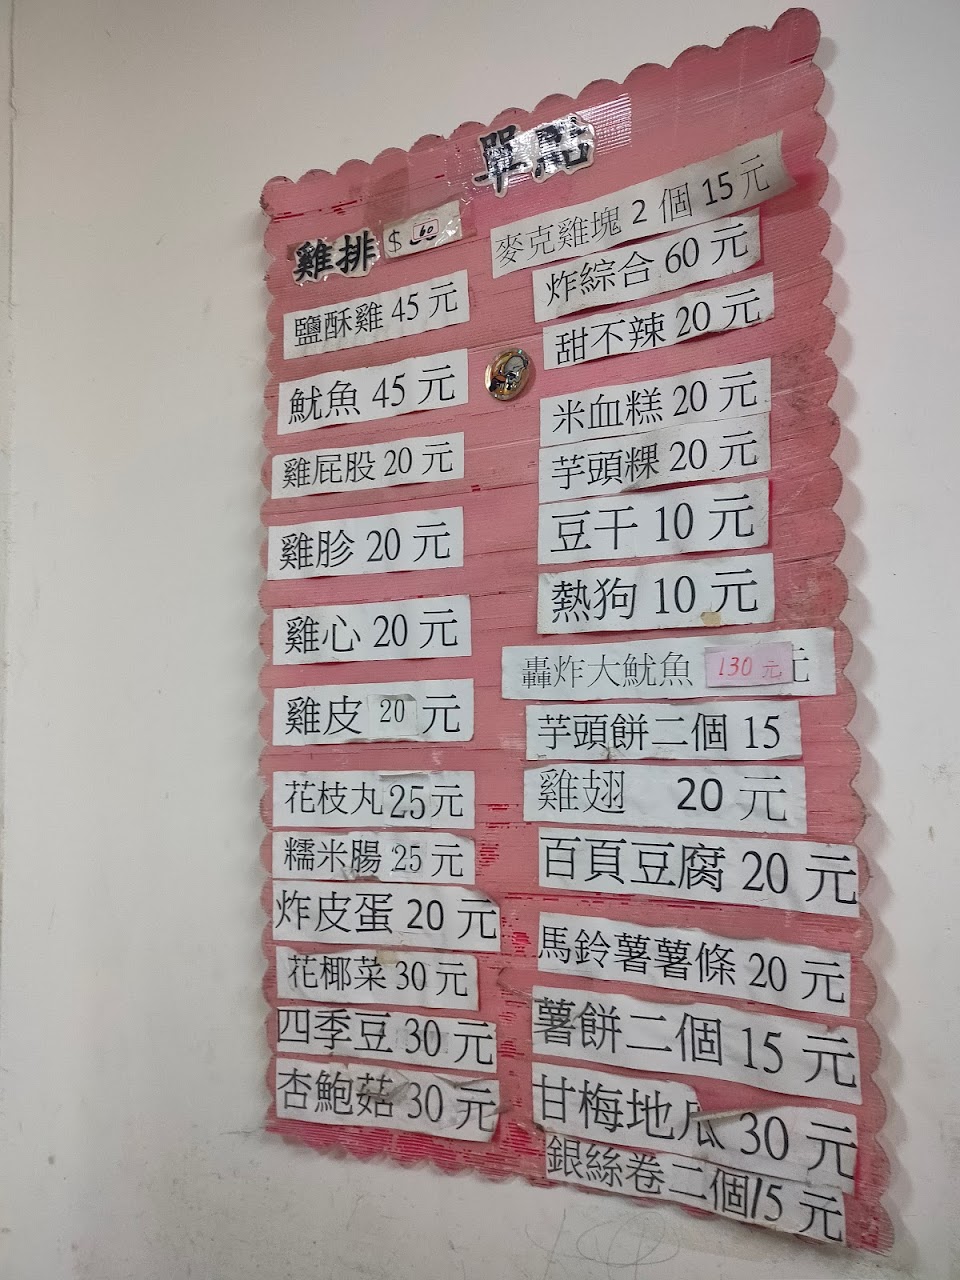 單點
雞排 $60
鹽酥雞 45 元
魷魚 45 元
雞屁股 20 元
雞胗 20 元
雞心 20 元
雞皮 20 元
花枝丸 25 元
糯米腸 25 元
炸皮蛋 20 元
花椰菜 30 元
四季豆 30 元
杏鮑菇 30 元
麥克雞塊 2 個 15 元
炸綜合 60 元
甜不辣 20 元
米血糕 20 元
芋頭粿 20 元
豆干 10 元
熱狗 10 元
轟炸大魷魚 130 元 元
芋頭餅二個 15
雞翅 20 元
百頁豆腐 20 元
馬鈴薯薯條 20 元
薯餅二個 15 元
甘梅地瓜 30 元
銀絲卷二個15 元